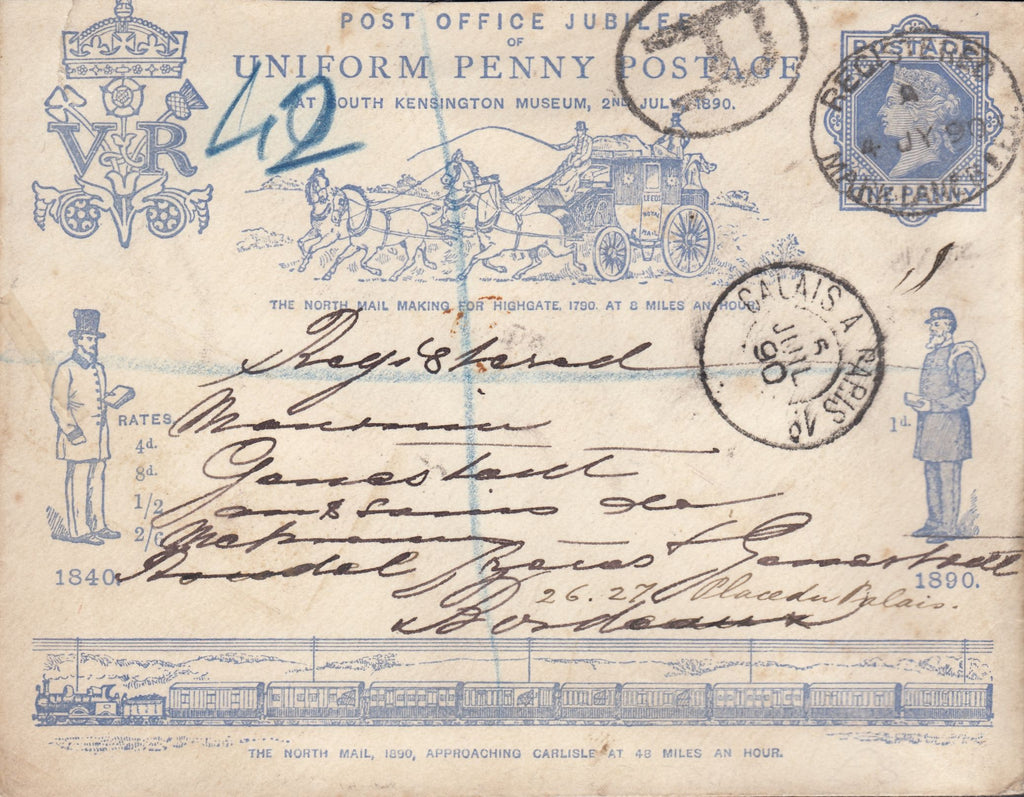 POST OFFICE JUBILEE
OF
UNIFORM PENNY POSTAGE
AT SOUTH KENSINGTON MUSEUM, 2ND JULY 1890.
VR
42
R
POSTAGE
ONE PENNY
REGISTERED
A
4 JY 90
THE NORTH MAIL MAKING FOR HIGHGATE, 1790. AT 8 MILES AN HOUR.
CALAIS A PARIS
5
JUIL
90
Registered
Monsieur
RATES
4d.
8d.
1/2
2/6
1d.
Genestout
aux soins de
1840.
1890.
26.27 Place du Palais.
Bordeaux
THE NORTH MAIL, 1890, APPROACHING CARLISLE AT 48 MILES AN HOUR.